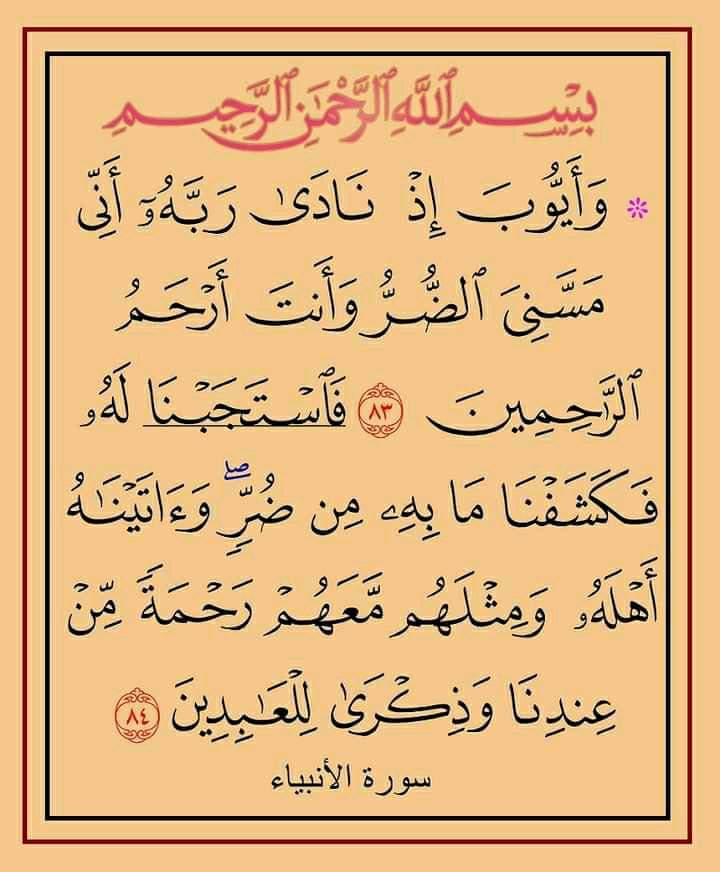 بِسْمِ ٱللَّهِ ٱلرَّحْمَٰنِ ٱلرَّحِيمِ
۞ وَأَيُّوبَ إِذْ نَادَىٰ رَبَّهُۥٓ أَنِّي
مَسَّنِيَ ٱلضُّرُّ وَأَنتَ أَرْحَمُ
ٱلرَّٰحِمِينَ ٨٣ فَٱسْتَجَبْنَا لَهُۥ
فَكَشَفْنَا مَا بِهِۦ مِن ضُرٍّۖ وَءَاتَيْنَٰهُ
أَهْلَهُۥ وَمِثْلَهُم مَّعَهُمْ رَحْمَةً مِّنْ
عِندِنَا وَذِكْرَىٰ لِلْعَٰبِدِينَ ٨٤
سورة الأنبياء